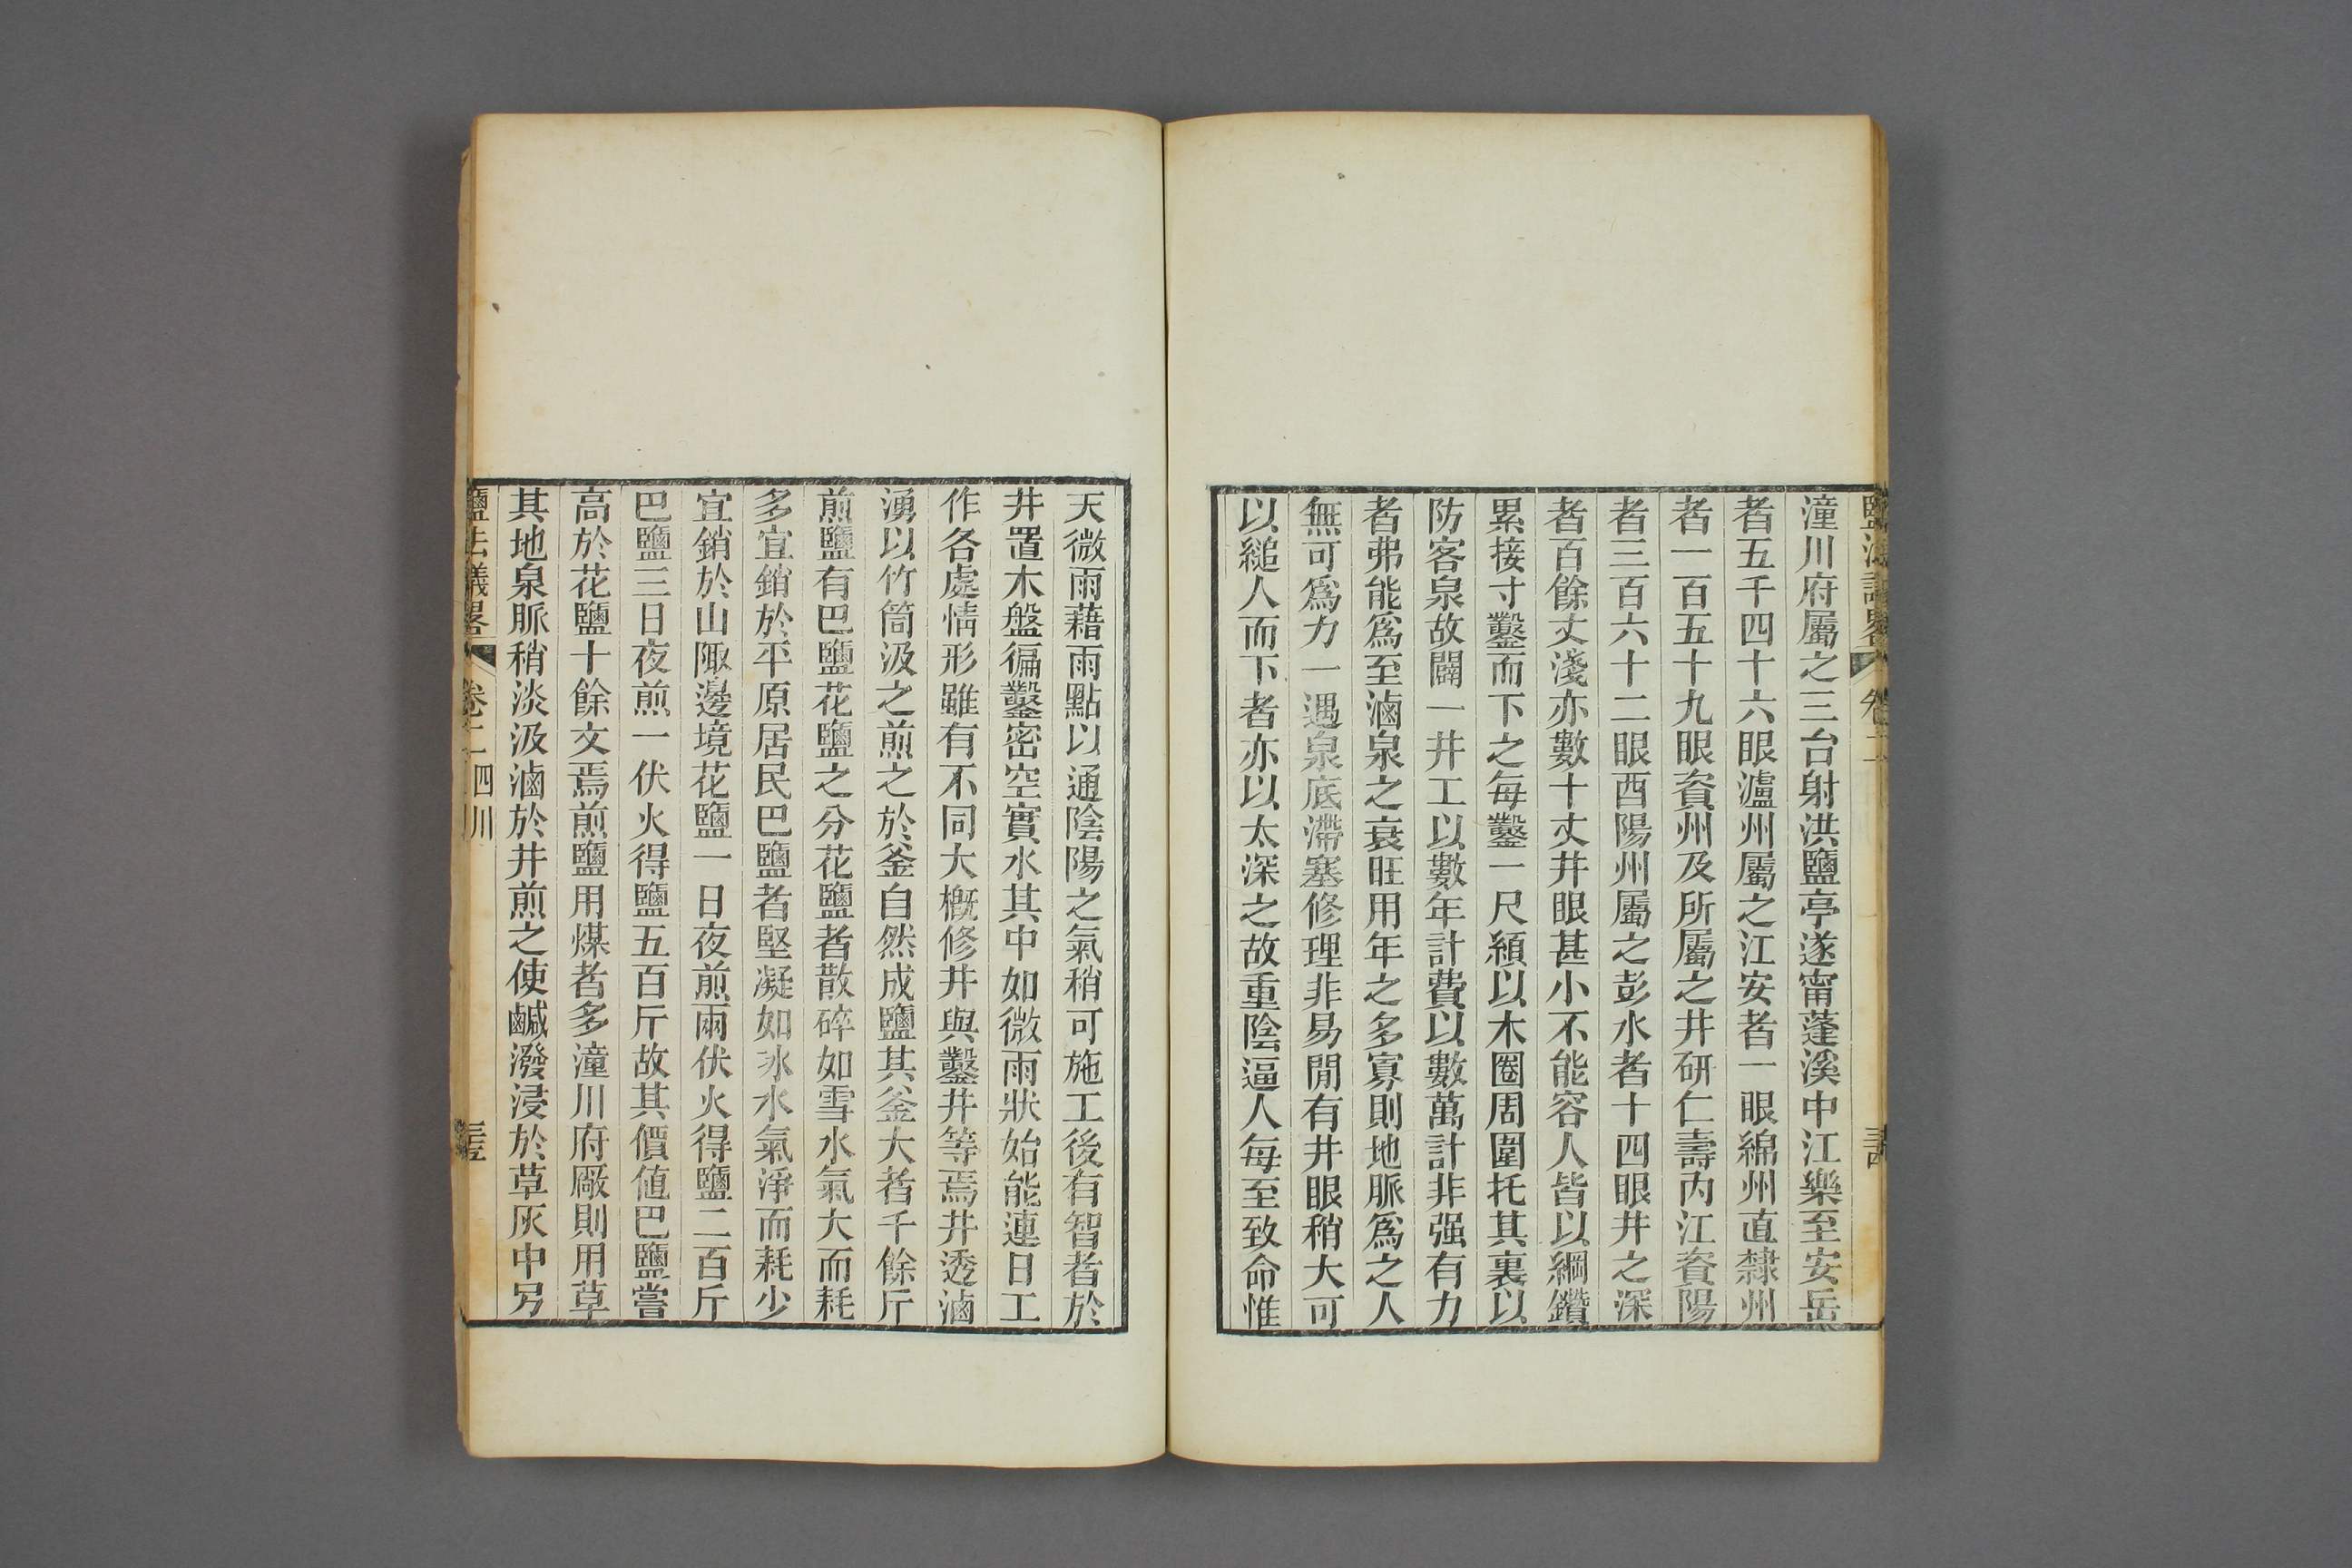 潼川府屬之三台射洪鹽亭遂甯蓬溪中江樂至安岳
者五千四十六眼瀘州屬之江安者一眼綿州直隸州
者一百五十九眼資州及所屬之井研仁壽內江資陽
者三百六十二眼酉陽州屬之彭水者十四眼井之深
者百餘丈淺亦數十丈井眼甚小不能容人皆以綱鑽
累接寸鑿而下之每鑿一尺續以木圈周圍托其裏以
防客泉故闢一井工以數年計費以數萬計非强有力
者弗能爲至滷泉之衰旺用年之多寡則地脈爲之人
無可爲力一遇泉底滯塞修理非易閒有井眼稍大可
以縋人而下者亦以太深之故重陰逼人每至致命惟
天微雨藉雨點以通陰陽之氣稍可施工後有智者於
井置木盤徧鑿密空實水其中如微雨狀始能連日工
作各處情形雖有不同大概修井與鑿井等焉井透滷
湧以竹筒汲之煎之於釜自然成鹽其釜大者千餘斤
煎鹽有巴鹽花鹽之分花鹽者散碎如雪水氣大而耗
多宜銷於平原居民巴鹽者堅凝如冰水氣淨而耗少
宜銷於山陬邊境花鹽一日夜煎兩伏火得鹽二百斤
巴鹽三日夜煎一伏火得鹽五百斤故其價值巴鹽嘗
高於花鹽十餘文焉煎鹽用煤者多潼川府厰則用草
其地泉脈稍淡汲滷於井煎之使鹹潑浸於草灰中另
鹽法議畧 卷二 四川 三五